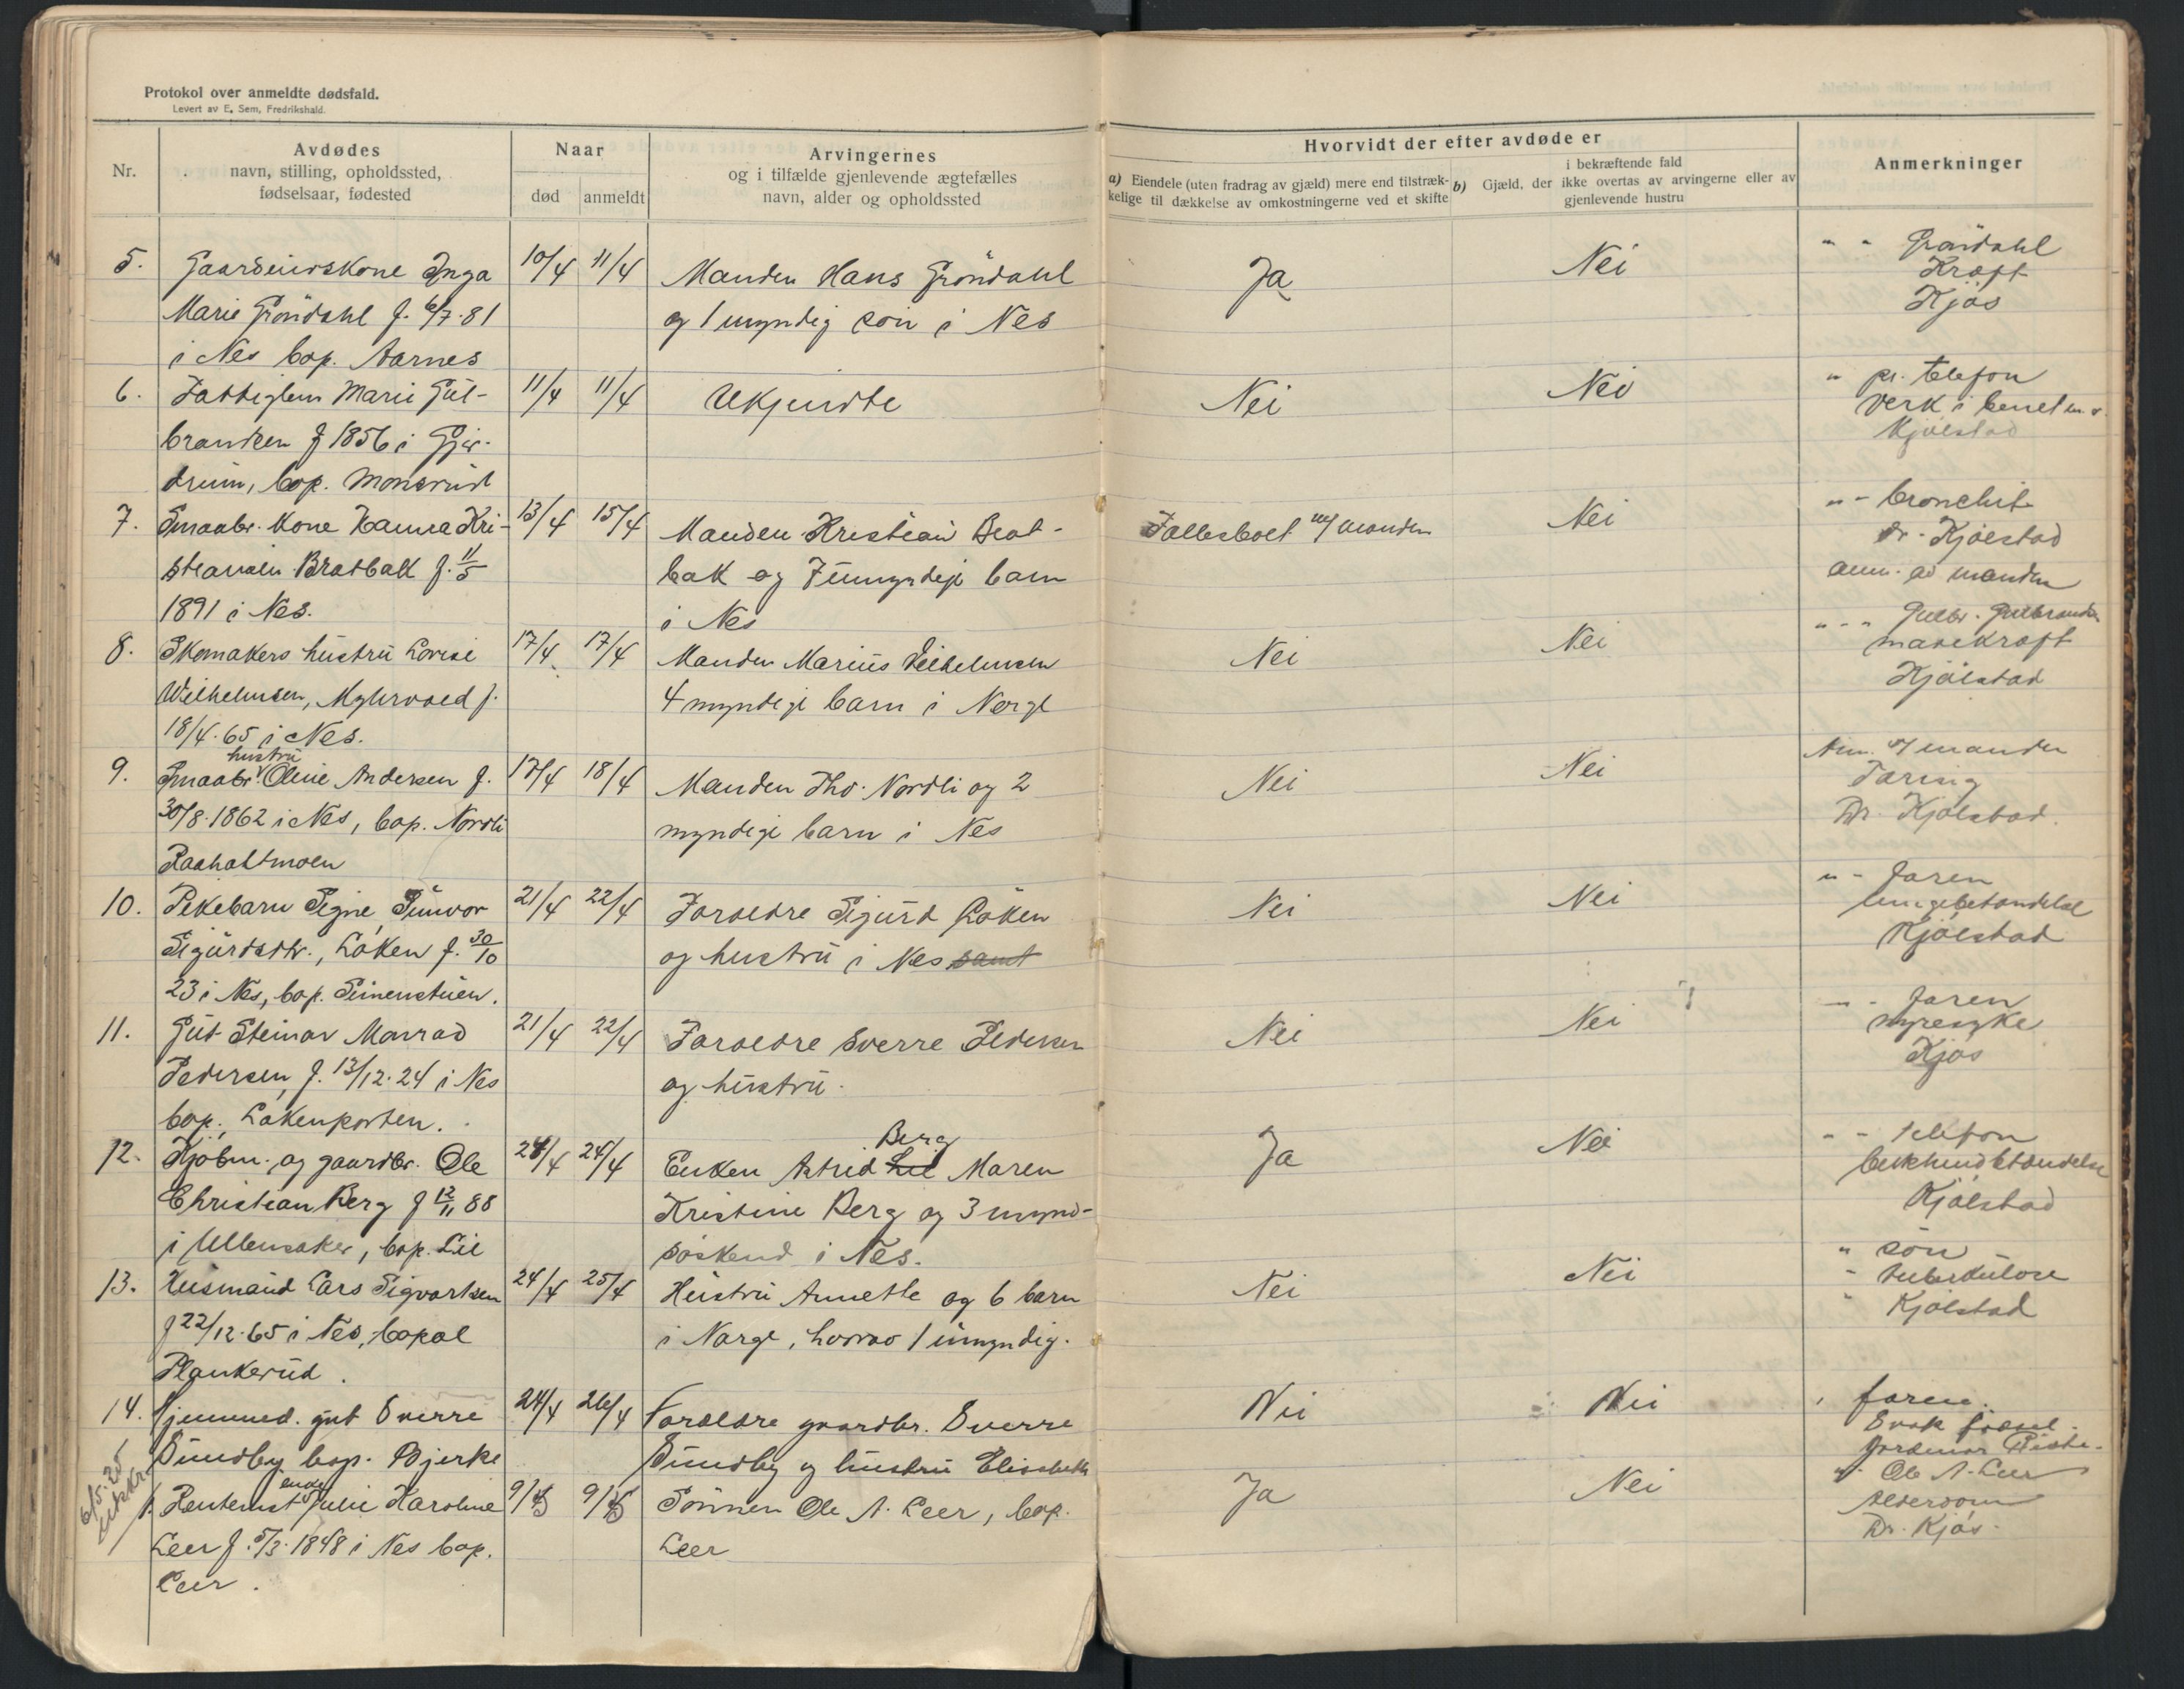 Protokol over anmeldte dødsfald.
Levert av E. Sem, Fredrikshald.
Nr.
Avdødes
navn, stilling, opholdssted,
fødselsaar, fødested
Naar
død
anmeldt
Arvingernes
og i tilfælde gjenlevende ægtefælles
navn, alder og opholdssted
Hvorvidt der efter avdøde er
a) Eiendele (uten fradrag av gjæld) mere end tilstræk-
kelige til dækkelse av omkostningerne ved et skifte
i bekræftende fald
b) Gjæld, der ikke overtas av arvingerne eller av
gjenlevende hustru
Anmerkninger
5.
Gaardeierskone Inga
Marie Gröndahl f. 6/7.81
i Nes bop. Aarnes
10/4 11/4
Manden Hans Gröndahl
og 1 myndig sön i Nes
Ja
Nei
" " Gröndahl
Kræft
Kjös
6.
Fattiglem Marie Gul-
brandsen f 1856 i Gjer-
drum, bop. Monsrud
11/4 11/4
Ukjendte
Nei
Nei
" pr. telefon
Verk i benet m.v.
Kjölstad
7.
Smaabr. kone Hanna Kri-
stiansen Bratbak f. 11/5
1891 i Nes.
13/4 15/4
Manden Kristian Brat-
bak og 7 umyndige barn
i Nes
Fællesboet m/ manden
Nei
" - bronchit
dr. Kjölstad
anm. av manden
8.
Skomakers hustru Lovise
Wilhelmsen, Myhrvold f.
18/4.65 i Nes.
17/4 17/4
Manden Marius Wilhelmsen
4 myndige barn i Norge
Nei
Nei
" - " Gulbr. Gulbrandsen
mavekræft
Kjölstad
9.
hustru
Smaabr. Oline Andersen f.
30/8.1862 i Nes, bop. Nordli
Raaholtmoen
17/4 18/4
Manden Tho. Nordli og 2
myndige barn i Nes
Nei
Nei
Anm. af manden
Tæring
Dr. Kjölstad.
10.
Pikebarn Signe Gunvor
Sigurdsdtr., Löken f. 30/10
23 i Nes, bop. Simenstuen.
21/4 22/4
Foreldre Sigurd Löken
og hustru i Nes samt
Nei
Nei
" - faren
lungebetændelse
Kjölstad
11.
Gut Steinar Monrad
Pedersen, f. 13/12.24 i Nes
bop. Lökenporten.
21/4 22/4
Foreldre Sverre Pedersen
og hustru.
Nei
Nei
- faren
nyresyke
Kjös
12.
Kjöbm. og gaardbr. Ole
Christian Berg f 12/11 88
i Ullensaker, bop. Lie
24/4 24/4
Berg
Enken Astrid Lie Maren
Kristine Berg og 3 mynd-
söskend i Nes.
Ja
Nei
" - telefon
Kjölstad
13.
Husmand Lars Sigvartsen
f 22/12.65 i Nes, bopæl
Plankerud.
24/4 25/4
Hustru Annette og 6 barn
i Norge, hvorav 1 umyndig.
Nei
Nei
" sön
" tuberkulose
" Kjölstad
14.
Hjemmed. gut Sverre
Sundby bop. Bjerke
24/4 26/4
Foreldre gaardbr. Sverre
Sundby og hustru Elisabeth
Nei
Nei
faren.
Svak födsel.
Jordmor
6/5.25
1.
enke
Rentenist Julie Karoline
Leer f. 5/3.1848 i Nes bop.
Leer.
9/5 9/5
Sönnen Ole A. Leer, bop.
Leer
Ja
Nei
Ole A. Leer
Alderdom
Dr. Kjös.